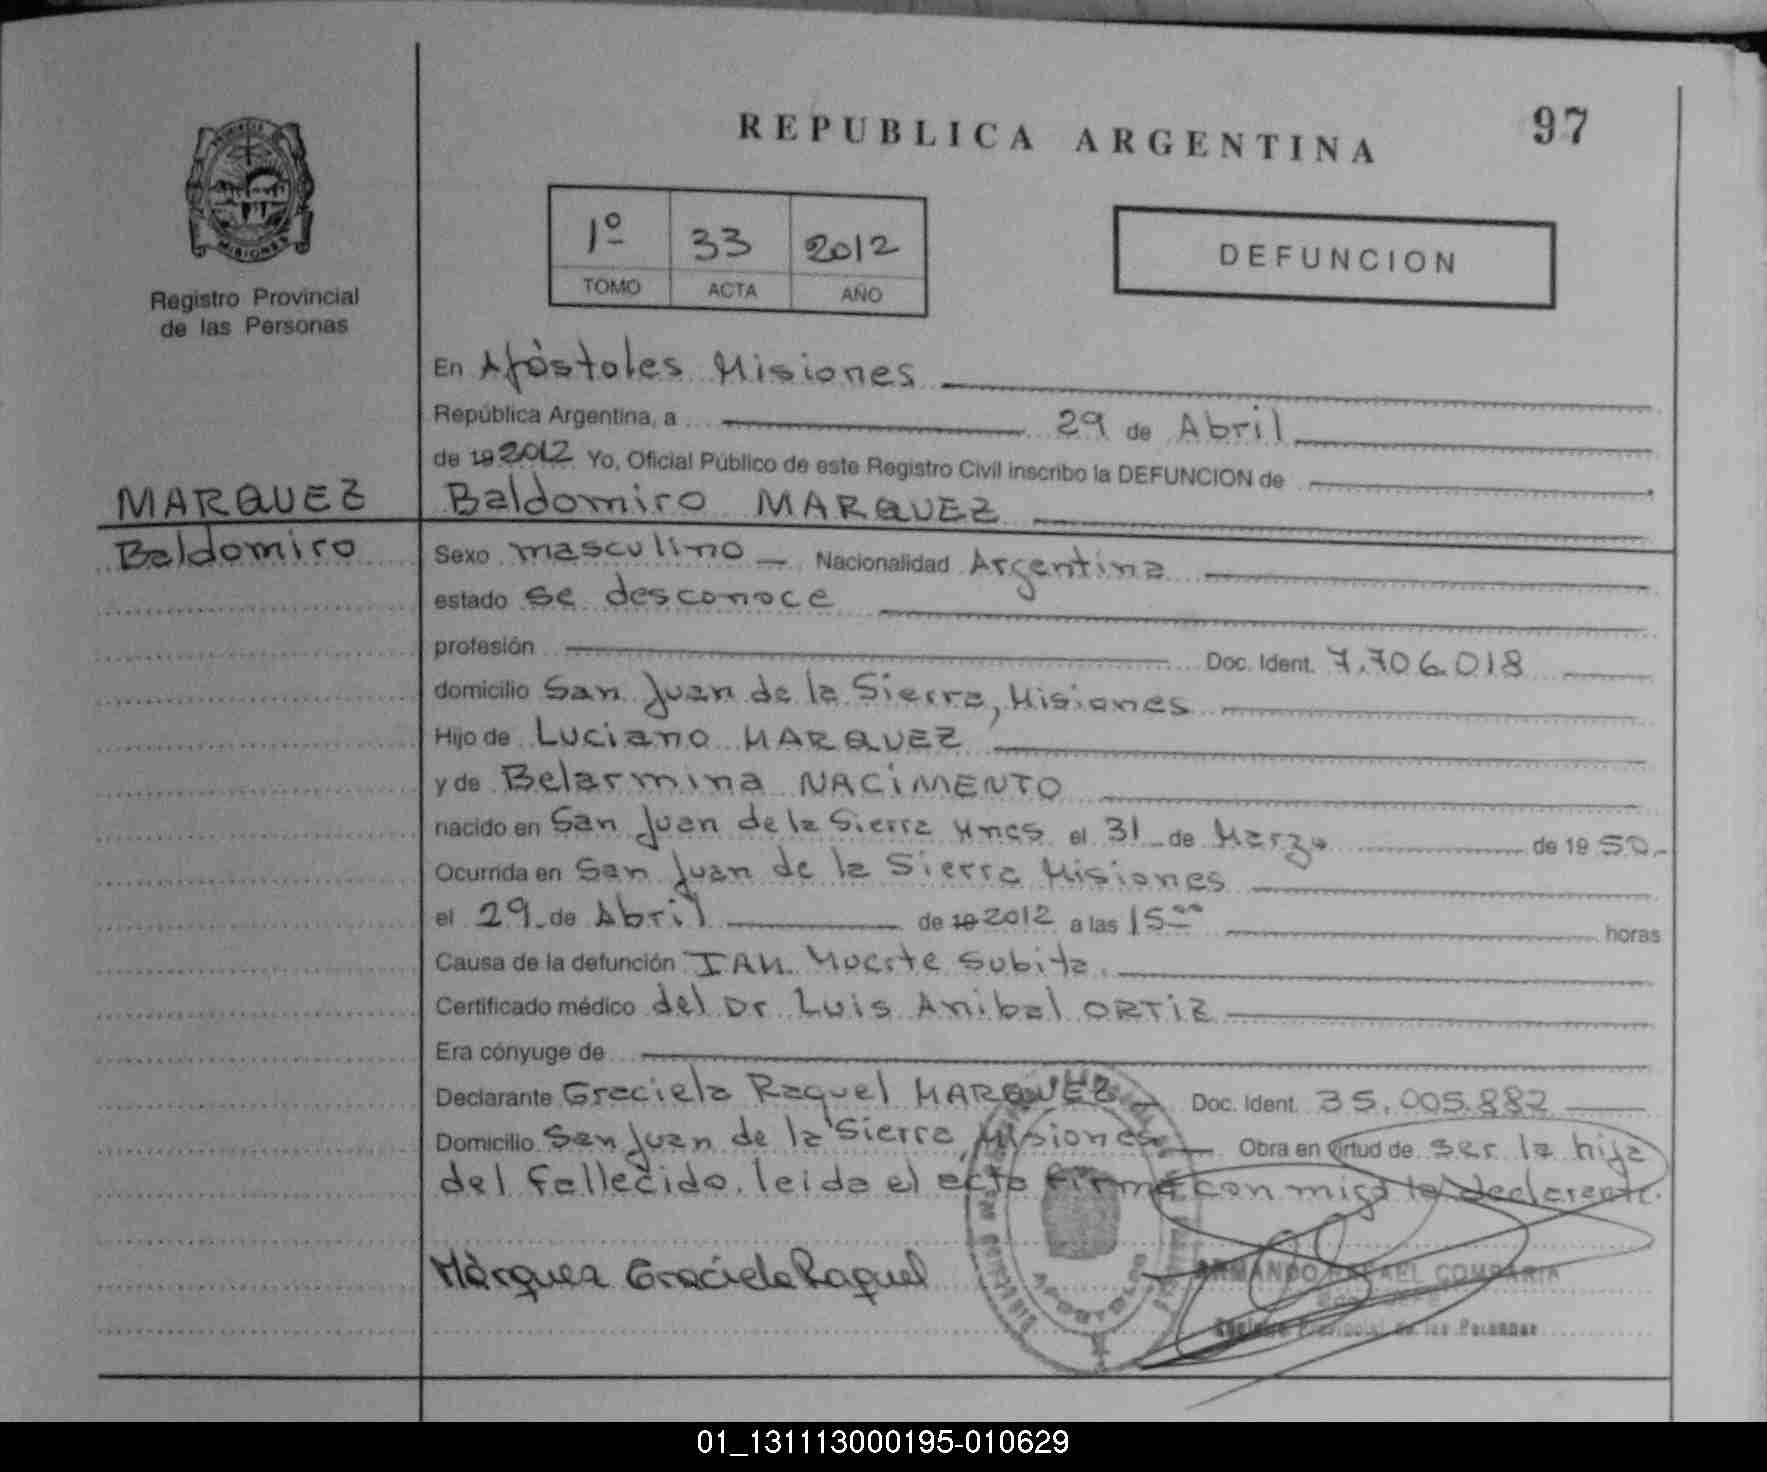 REPUBLICA ARGENTINA
97
PROVINCIA DE
MISIONES
Registro Provincial
de las Personas
1º 33 2012
TOMO ACTA AÑO
DEFUNCION
En Apóstoles Misiones
República Argentina, a 29 de Abril
de 19 2012 Yo, Oficial Público de este Registro Civil inscribo la DEFUNCION de
MARQUEZ
Baldomiro
Baldomiro MARQUEZ
Sexo masculino Nacionalidad Argentina
estado se desconoce
profesión Doc. Ident. 7.706.018
domicilio San Juan de la Sierra, Misiones
Hijo de Luciano MARQUEZ
y de Belarmina NACIMENTO
nacido en San Juan de la Sierra Mnes el 31 de Marzo de 19 50.-
Ocurrida en San Juan de la Sierra Misiones
el 29 de Abril de 19 2012 a las 15 00 horas
Causa de la defunción IAM. Muerte Subita.
Certificado médico del Dr. Luis Anibal ORTIZ
Era cónyuge de
Declarante Graciela Raquel MARQUEZ Doc. Ident. 35.005.882
Domicilio San Juan de la Sierra, Misiones Obra en virtud de ser la hija
del fallecido. leida el acta firma con migo la declarente.
Márquez Graciela Raquel
APOSTOLES
ARMANDO RAFAEL COMPARIA
Registro Provincial de las Personas
01_131113000195-010629